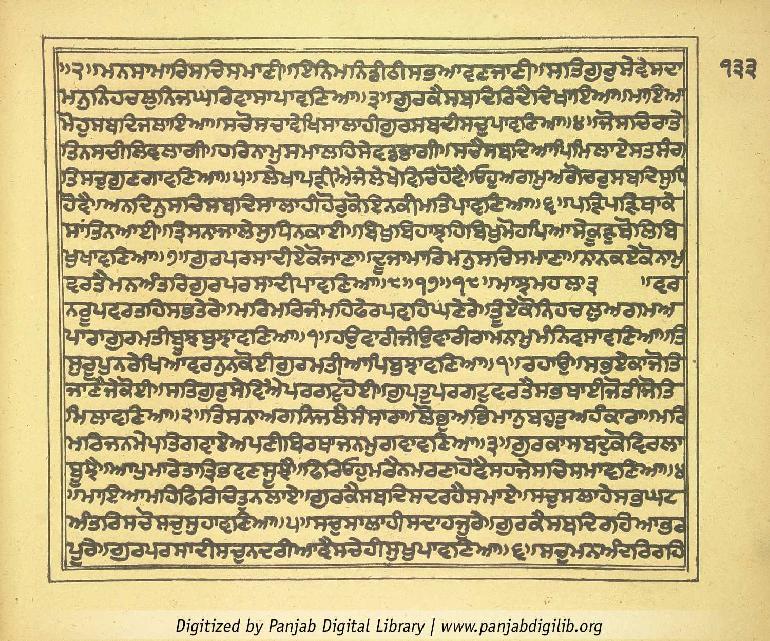 ॥੨॥ਮਨਸਾਮਾਰਿਸਚਿਸਮਾਣੀ॥ਇਨਿਮਨਿਡੀਠੀਸਭਆਵਣਜਾਣੀ॥ਸਤਿਗੁਰੁਸੇਵੇਸਦਾ
ਮਨੁਨਿਹਚਲੁਨਿਜਘਰਿਵਾਸਾਪਾਵਣਿਆ॥੩॥ਗੁਰਕੈਸਬਦਿਰਿਦੈਦਿਖਾਇਆ॥ਮਾਇਆ
ਮੋਹੁਸਬਦਿਜਲਾਇਆ॥ਸਚੋਸਚਾਵੇਖਿਸਾਲਾਹੀਗੁਰਸਬਦੀਸਚੁਪਾਵਣਿਆ॥੪॥ਜੋਸਚਿਰਾਤੇ
ਤਿਨਸਚੀਲਿਵਲਾਗੀ॥ਹਰਿਨਾਮੁਸਮਾਲਹਿਸੇਵਡਭਾਗੀ॥ਸਚੈਸਬਦਿਆਪਿਮਿਲਾਏਸਤਸੰਗ
ਤਿਸਚੁਗੁਣਗਾਵਣਿਆ॥੫॥ਲੇਖਾਪੜੀਐਜੇਲੇਖੇਵਿਚਿਹੋਵੈ॥ਓਹੁਅਗਮੁਅਗੋਚਰੁਸਬਦਿਸੁਧਿ
ਹੋਵੈ॥ਅਨਦਿਨੁਸਚਿਸਬਦਿਸਾਲਾਹੀਹੋਰੁਕੋਇਨਕੀਮਤਿਪਾਵਣਿਆ॥੬॥ਪੜਿਪੜਿਥਾਕੇ
ਸਾਂਤਿਨਆਈ॥ਤ੍ਰਿਸਨਾਜਾਲੇਸੁਧਿਨਕਾਈ॥ਬਿਖੁਬਿਹਾਝਹਿਬਿਖੁਮੋਹਪਿਆਸੇਕੂੜੁਬੋਲਿਬਿ
ਖੁਖਾਵਣਿਆ॥੭॥ਗੁਰਪਰਸਾਦੀਏਕੋਜਾਣਾ॥ਦੂਜਾਮਾਰਿਮਨੁਸਚਿਸਮਾਣਾ॥ਨਾਨਕਏਕੋਨਾਮੁ
ਵਰਤੈਮਨਅੰਤਰਿਗੁਰਪਰਸਾਦੀਪਾਵਣਿਆ॥੮॥੧੭॥੧੮॥ਮਾਝਮਹਲਾ੩ ॥ਵਰ
ਨਰੂਪਵਰਤਹਿਸਭਤੇਰੇ॥ਮਰਿਮਰਿਜੰਮਹਿਫੇਰਪਵਹਿਘਣੇਰੇ॥ਤੂੰਏਕੋਨਿਹਚਲੁਅਗਮਅ
ਪਾਰਾਗੁਰਮਤੀਬੂਝਬੁਝਾਵਣਿਆ॥੧॥ਹਉਵਾਰੀਜੀਉਵਾਰੀਰਾਮਨਾਮੁਮੰਨਿਵਸਾਵਣਿਆ॥ਤਿ
ਸੁਰੂਪੁਨਰੇਖਿਆਵਰਨੁਨਕੋਈਗੁਰਮਤੀਆਪਿਬੁਝਾਵਣਿਆ॥੧॥ਰਹਾਉ॥ਸਭਏਕਾਜੋਤਿ
ਜਾਣੈਜੇਕੋਈ॥ਸਤਿਗੁਰੁਸੇਵਿਐਪਰਗਟੁਹੋਈ॥ਗੁਪਤੁਪਰਗਟੁਵਰਤੈਸਭਥਾਈਜੋਤੀਜੋਤਿ
ਮਿਲਾਵਣਿਆ॥੨॥ਤਿਸਨਾਅਗਨਿਜਲੈਸੰਸਾਰਾ॥ਲੋਭੁਅਭਿਮਾਨੁਬਹੁਤੁਅਹੰਕਾਰਾ॥ਮਰਿ
ਮਰਿਜਨਮੈਪਤਿਗਵਾਏਅਪਣੀਬਿਰਥਾਜਨਮੁਗਵਾਵਣਿਆ॥੩॥ਗੁਰਕਾਸਬਦੁਕੋਵਿਰਲਾ
ਬੂਝੈ॥ਆਪੁਮਾਰੇਤਾਤ੍ਰਿਭਵਣੁਸੂਝੈ॥ਫਿਰਿਓਹੁਮਰੈਨਮਰਣਾਹੋਵੈਸਹਜੇਸਚਿਸਮਾਵਣਿਆ॥੪
॥ਮਾਇਆਮਹਿਫਿਰਿਚਿਤੁਨਲਾਏ॥ਗੁਰਕੈਸਬਦਿਸਦਰਹੈਸਮਾਏ॥ਸਚੁਸਲਾਹੇਸਭਘਟ
ਅੰਤਰਿਸਚੋਸਚੁਸੁਹਾਵਣਿਆ॥੫॥ਸਚੁਸਾਲਾਹੀਸਦਾਹਜੂਰੇ॥ਗੁਰਕੈਸਬਦਿਰਹਿਆਭਰ
ਪੂਰੇ॥ਗੁਰਪਰਸਾਦੀਸਚੁਨਦਰੀਆਵੈਸਚੇਹੀਸੁਖੁਪਾਵਣਿਆ॥੬॥ਸਚੁਮਨਅੰਦਰਿਰਹਿ
੧੩੩
Digitized by Panjab Digital Library | www.panjabdigilib.org